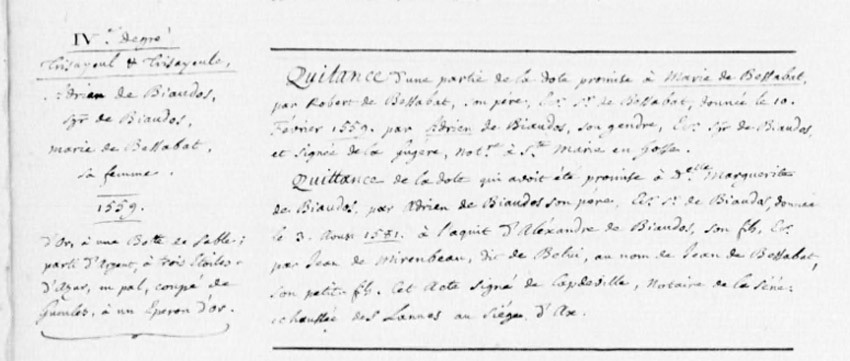 IV.e degré
Trisayeul & Trisayeule,
Adrien de Biaudos,
Sgr de Biaudos,
marie de Bessabat,
sa femme.
1559.
D'or, à une Botte de Sable;
parti d'Argent, à trois Etoiles
d'Azur, en pal, coupé de
Gueules, à un Eperon d'or.
Quitance d'une partie de la dote promise à Marie de Bessabat,
par Robert de Bessabat, son pére, Ec.r S.r de Bessabat, donnée le 10.
Février 1559. par Adrien de Biaudos, son gendre, Ec.r Sgr de Biaudos,
et signée de la Not.re à S.te Marie en Gosse.
Quittance de la dote qui avoit été promise à D.elle Marguerite
de Biaudos, par Adrien de Biaudos son pére, Ec.r S.r de Biaudos, donnée
le 3. Aoust 1581. à l'aquit d'Aléxandre de Biaudos, son fils, Ec.r
par Jean de Mirenbeau, dit de Behic, au nom de Jean de Bessabat,
son petit-fils. Cet Acte signé de Capdeville, Notaire de la Séné-
chaussée des Lannes au Siége d'Ax.